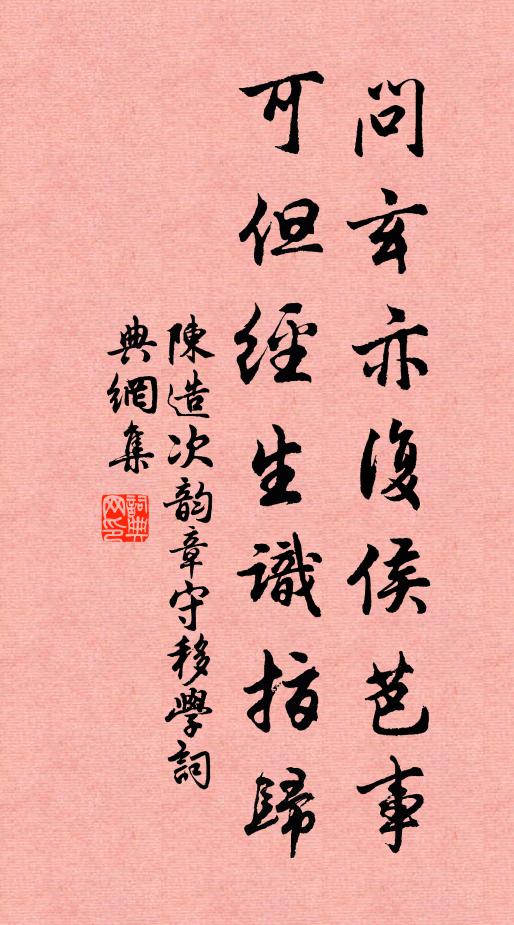 問玄亦復侯芭事
可但經生識指歸
陳造次韵章守移學詞
典網集
詞典網印